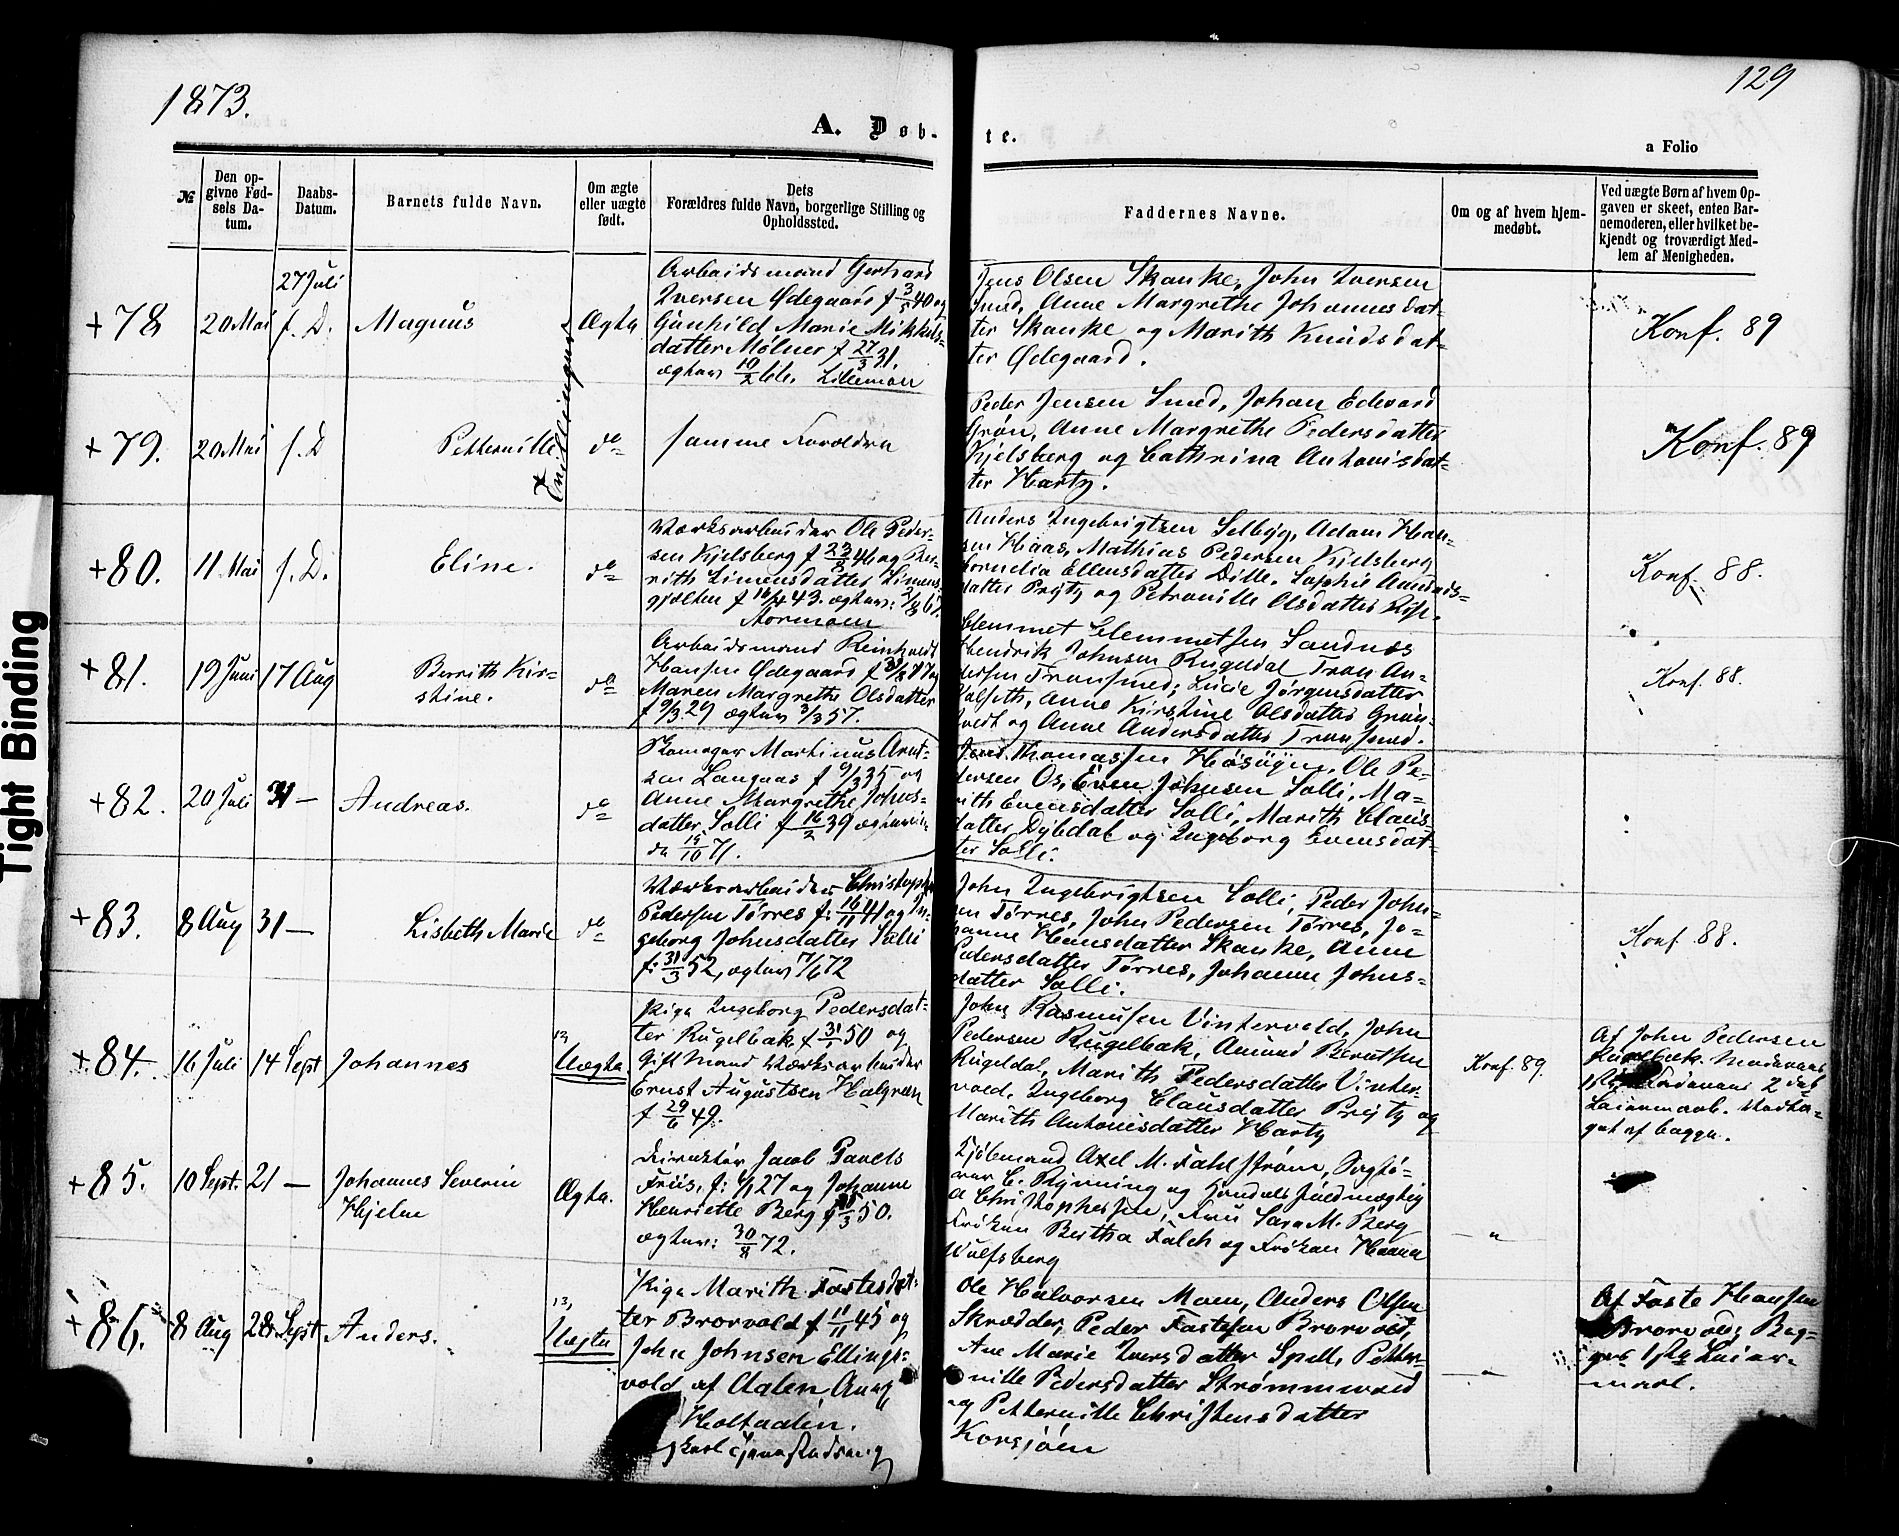 1873.
129
A. Døb-
te.
a Folio
№
Den op-
givne Fød-
sels Da-
tum.
Daabs-
Datum.
Barnets fulde Navn.
Om ægte
eller uægte
født.
Dets
Forældres fulde Navn, borgerlige Stilling og
Opholdssted.
Faddernes Navne.
Om og af hvem hjem-
medøbt.
Ved uægte Børn af hvem Op-
gaven er skeet, enten Bar-
nemoderen, eller hvilket be-
kjendt og troværdigt Med-
lem af Menigheden.
+ 78
20 Mai
27 Juli
f. D.
Magnus
Ægte
Arbeidsmand Gerhard
Iversen Ødegaard f 3/5 40 og
Gunhild Marie Mikkels-
datter Mølner f 27/3 31.
ægtev 10/2 66. Lillemoen
Jens Olsen Skanke, John Iversen
Smed, Anne Margrethe Johannesdat-
ter Skanke og Marith Knudsdat-
ter Ødegaard.
Konf. 89
+ 79.
20 Mai
f. D
Petternille
Tvillinger
do
samme Forældre
Peder Jensen Smed, Johan Edvard
Grøn, Anne Margrethe Pedersdatter
Kjelsberg og Cathrina Antonisdat-
ter Harty.
Konf. 89
+ 80.
11 Mai
f. D.
Eline.
do
Værksarbeider Ole Peder-
sen Kjelsberg f 23/8 46 og Be-
rith Simensdatter Simens-
gjelten f 16/4 43. ægtev:
Normoen
Anders Ingebrigtsen Selbyg, Adam Han-
sen Haas, Mathias Pedersen Kjelsberg
Cornelia Ellensdatter Dille, Sophie Amunds-
datter Prytz og Petronille Olsdatter
Konf. 88.
+ 81.
19 Juni
17 Aug
Berrith Kir-
stine.
do
Arbeidsmand Reinholdt
Hansen Ødegaard f
Maren Margrethe Olsdatter
f 9/3 29 ægtev 3/3 57.
Clemmet Clemmetsen Sandnæs
Hendrik Johnsen Rugeldal Tron An-
dersen Tronsmed, Lucie Jørgensdatter
Galseth, Anne Kirstine Olsdatter Grøn-
tvedt og Anne Andersdatter Tronsmed.
Konf. 88.
+ 82.
20 Juli
31 —
Andreas.
do
Skomager Martinus Arnt-
sen Langaas f 9/3 35 og
Anne Margrethe Johns-
datter Solli f 16/2 39 ægtevi-
de 14/10 71.
Thomassen Høsøyen, Ole Pe-
dersen Os, Even Johnsen Solli, Ma-
rith Evensdatter Solli, Marith Claus-
datter Dybdal og Ingeborg Evensdat-
ter Solli.
+ 83.
8 Aug
31 —
Lisbeth Marie
do
Værksarbeider Christopher
Pedersen Tørres f: 16/11 41 og In-
geborg Johnsdatter Solli
f: 31/3 52, ægtev 17/6 72
John Ingebrigtsen Solli, Peder John-
sen Tørres, John Pedersen Tørres, Jo-
hanne Hansdatter Skanke, Anne
Pedersdatter Tørres, Johanne Johns-
datter Solli.
Konf 88.
+ 84.
16 Juli
14 Sept
Johannes
12,
Uægte
Pige Ingeborg Pedersdat-
ter Rugelbak f 31/1 50 og
Gift Mand Værksarbeider
Ernst Augustsen Halgreen
f 29/6 49.
John Rasmussen Vintervold, John
Pedersen Rugelbak, Amund Berntsen
Rugeldal, Marith Pedersdatter Vinter-
vold, Ingeborg Clausdatter Prytz og
Marith Antonisdatter Harty
Konf. 89
Af John Pedersen
Rugelbak. Moderens
1ste Faderens 2det
Leiermaal. Modta-
get af begge.
+ 85.
10 Sept.
21 —
Johannes Severin
Hjelm
Ægte.
Direktør Jacob Pavels
Friis, f: 6/1 27 og Johanne
Henriette Berg f 50.
ægtev: 30/8 72.
Kjøbmand Axel M. Fahlstrøm, Sogto-
rer C. Rynning og Handelsfuldmægtig
A Christophersen, Fru Sara M. Berg
Frøken Bertha Falch og Frøken Hanna
Wulfsberg
— " —
+ 86.
8 Aug
28 Sept
Anders.
13,
Uægte
Pige Marith Fastesdat-
ter Brorvold f 11/11 45 og
John Johnsen Ellings-
vold af Aalen, Anex
Holtaalen.
Ole Halvorsen Moen, Anders Olsen
Skrædder, Peder Fastesen Brorvold,
Ane Marie Iversdatter Spell, Petter-
nille Pedersdatter Strømmevold
og Petternille Christensdatter
Korssjøen
— " —
Af Faste Hansen
Brorvold; Beg-
ges 1ste Leier-
maal.
Tight Binding